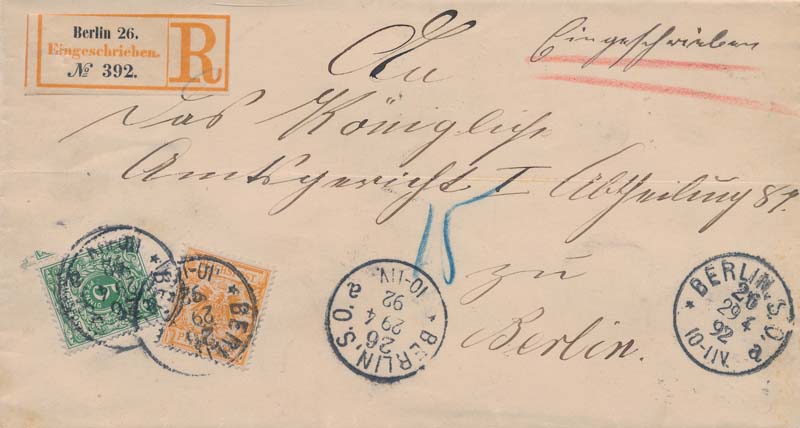 Berlin 26.
Eingeschrieben.
№ 392.
R
Eingeschrieben
An
das Königliche
Amtsgericht I Abtheilung 87.
15
zu
Berlin.
5
BERLIN.S.O.
26
29 4
92
10-11V.
a
BERLIN.S.O.
26
29 4
92
10-11V.
a